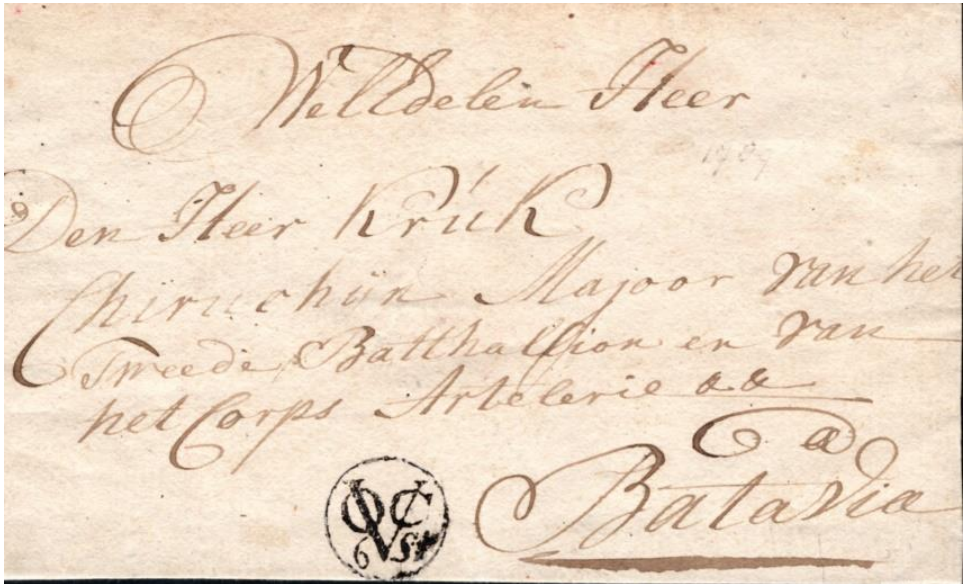 WelEdelen Heer
1789
Den Heer Krúk
Chiruchijn Majoor van het
Tweede Batthallion en van
het Corps Artelerie &&
a
Batavia
VOC
6 St